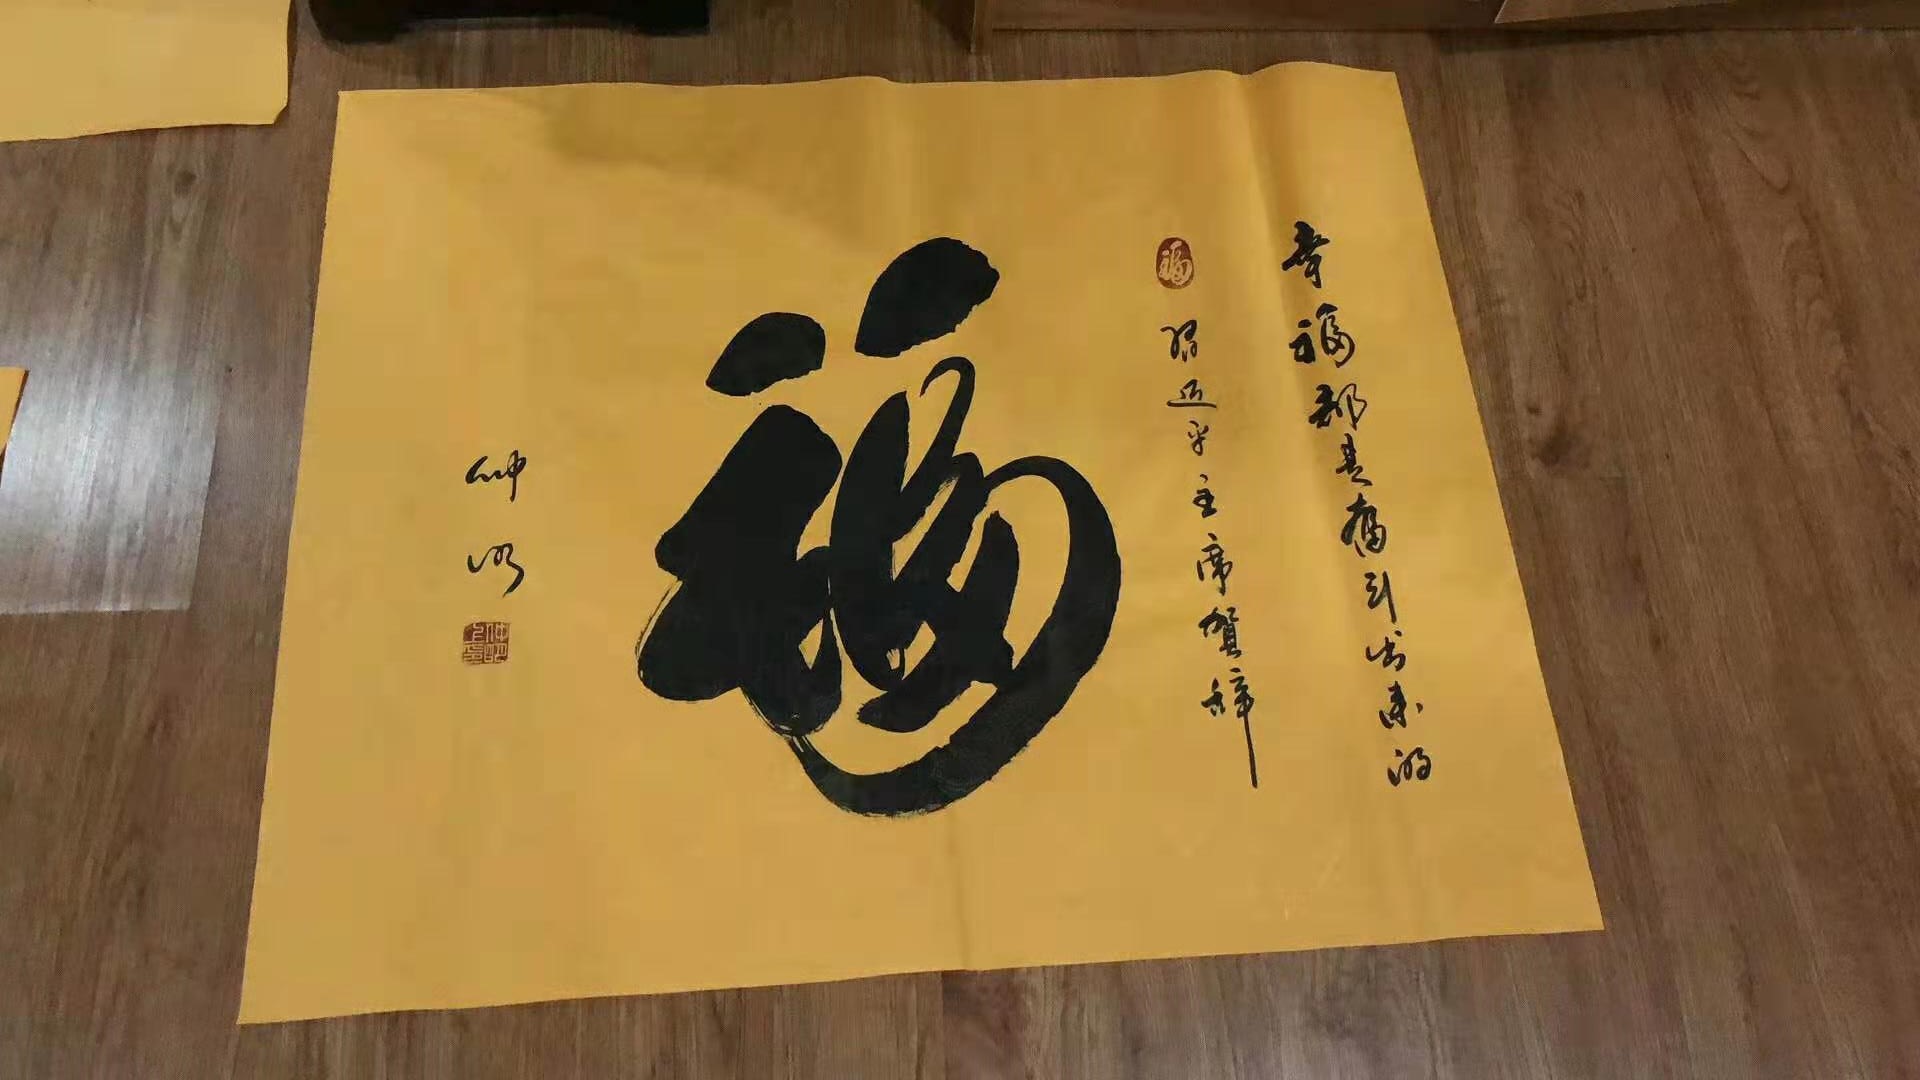 幸福都是奋斗出来的
福
习近平主席贺辞
福
仲明